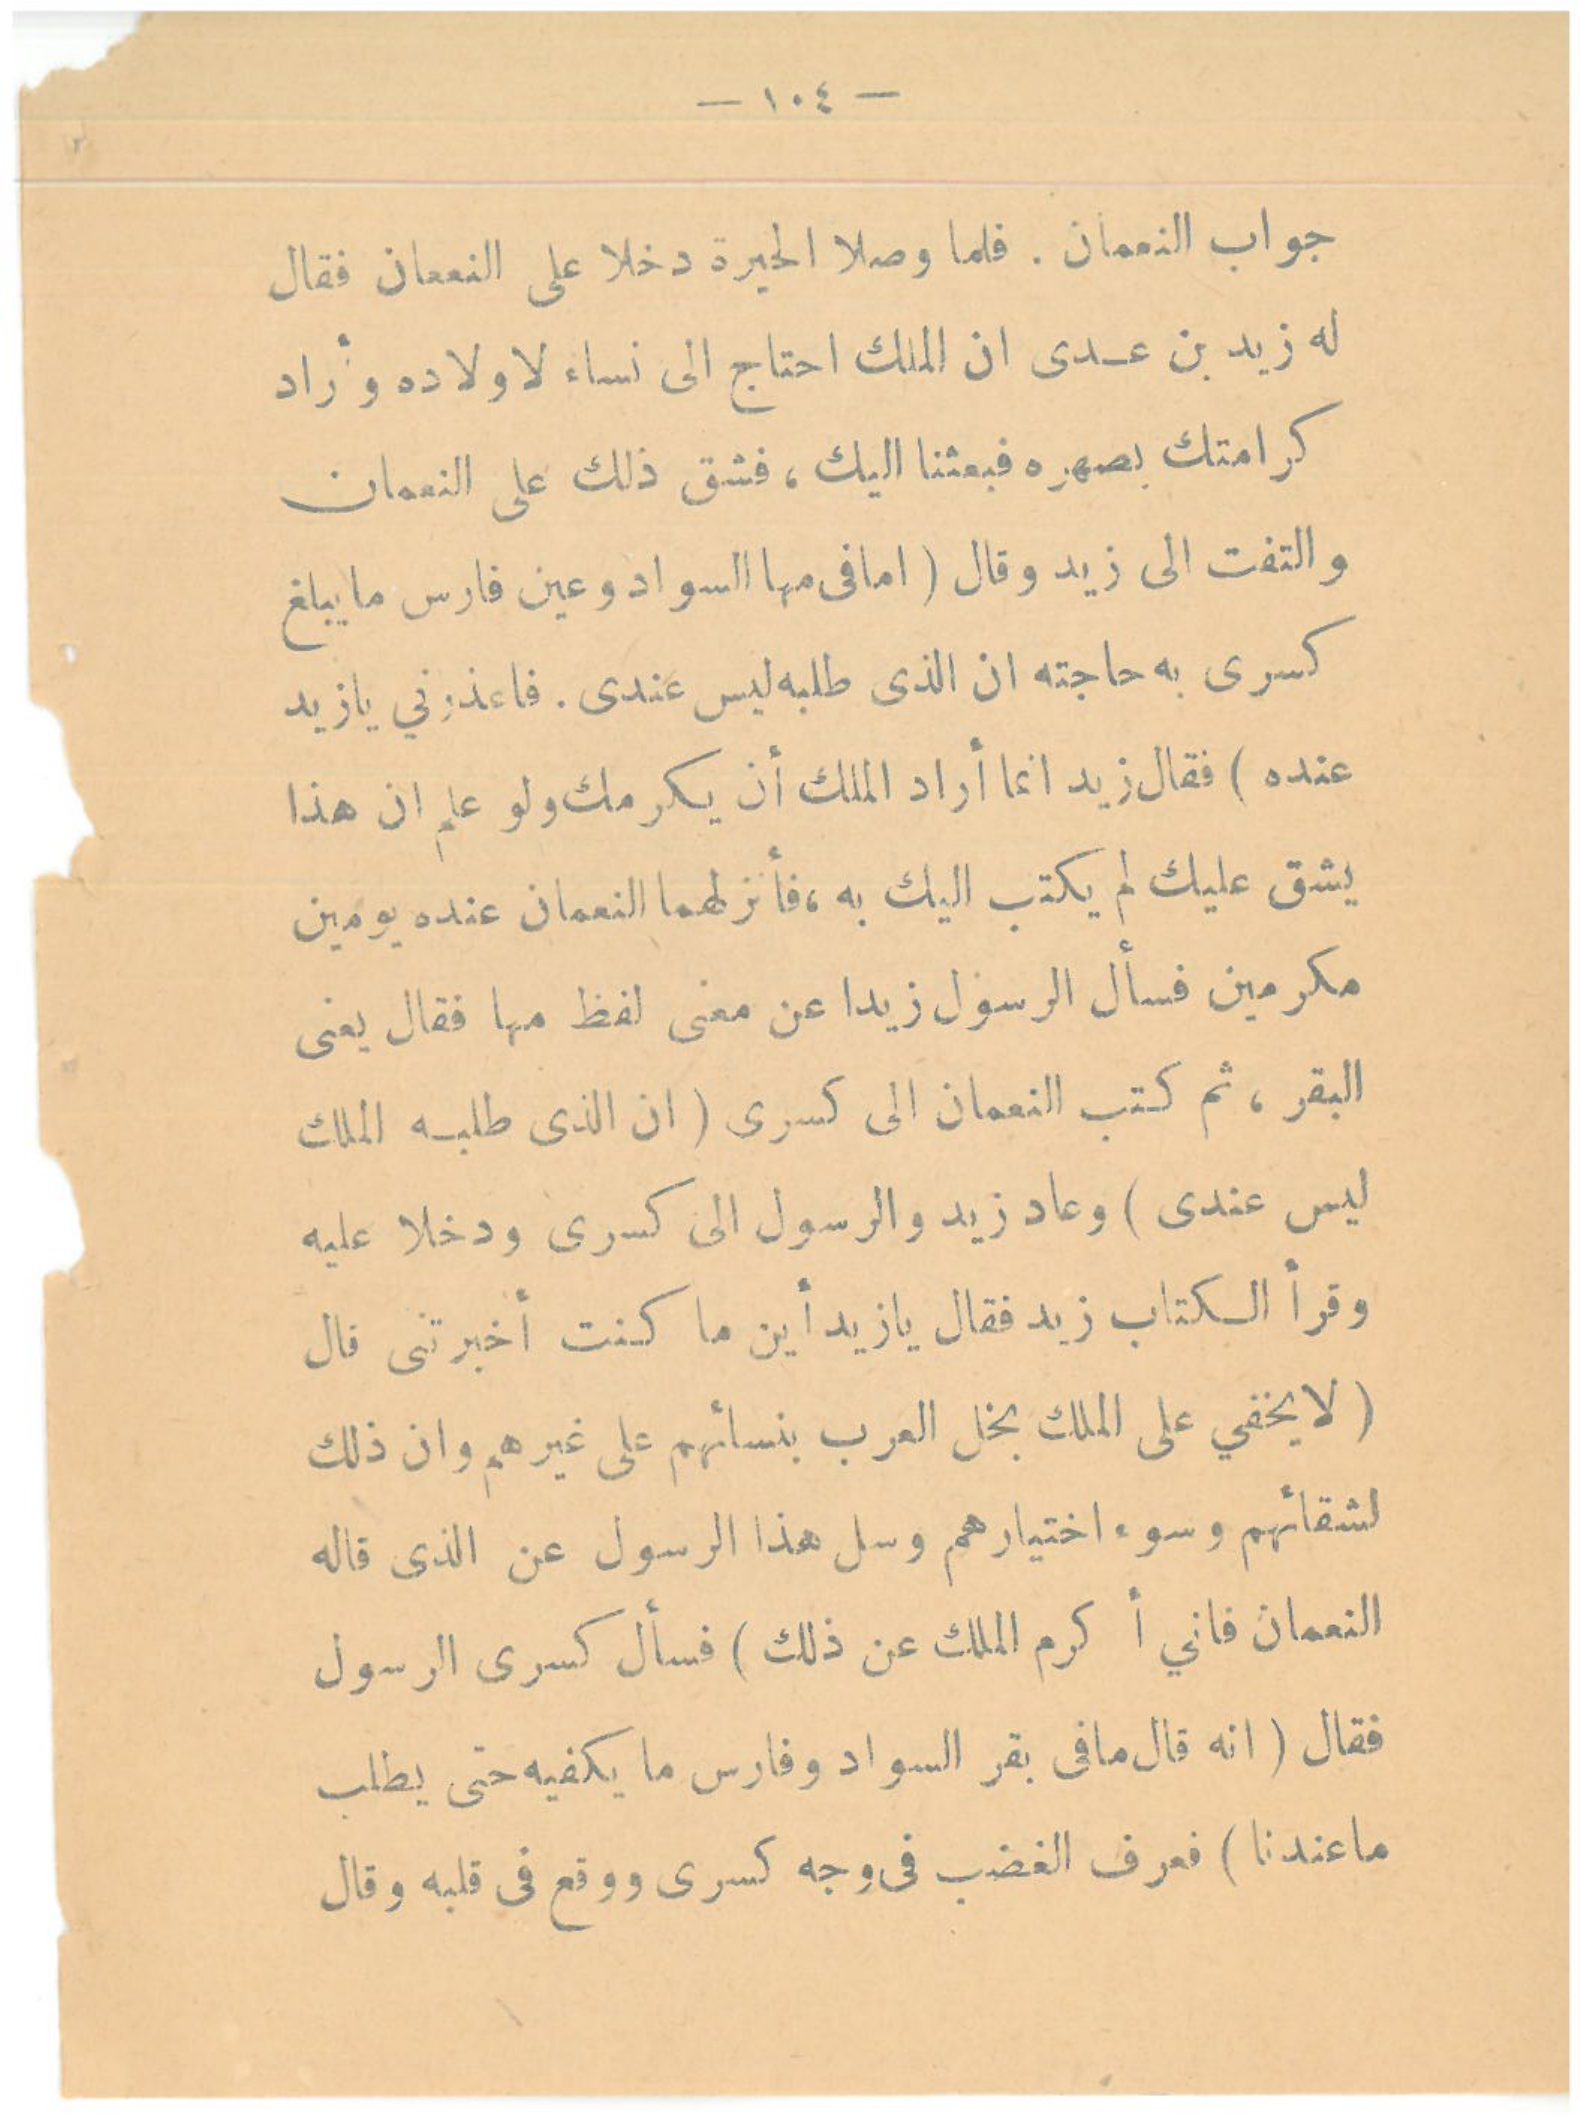 — ١٠٤ —
جواب النعمان . فلما وصلا الحيرة دخلا على النعمان فقال
له زيد بن عـدى ان الملك احتاج الى نساء لاولاده وأراد
كرامتك بصهره فبعثنا اليك ، فشق ذلك على النعمان
والتفت الى زيد وقال ( امافى مها السواد وعين فارس مايبلغ
كسرى به حاجته ان الذى طلبه ليس عندى . فاعذرني يازيد
عنده ) فقال زيد انما أراد الملك أن يكرمك ولو علم ان هذا
يشق عليك لم يكتب اليك به ، فأنزلهما النعمان عنده يومين
مكرمين فسأل الرسول زيدا عن معنى لفظ مها فقال يعنى
البقر ، ثم كتب النعمان الى كسرى ( ان الذى طلبـه الملك
ليس عندى ) وعاد زيد والرسول الى كسرى ودخلا عليه
وقرأ الـكتاب زيد فقال يازيد أين ما كنت أخبرتنى قال
( لايخفي على الملك بخل العرب بنسائهم على غيرهم وان ذلك
لشقائهم وسوء اختيارهم وسل هذا الرسول عن الذى قاله
النعمان فاني أ كرم الملك عن ذلك ) فسأل كسرى الرسول
فقال ( انه قال مافى بقر السواد وفارس ما يكفيه حتى يطلب
ماعندنا ) فعرف الغضب فى وجه كسرى ووقع فى قلبه وقال